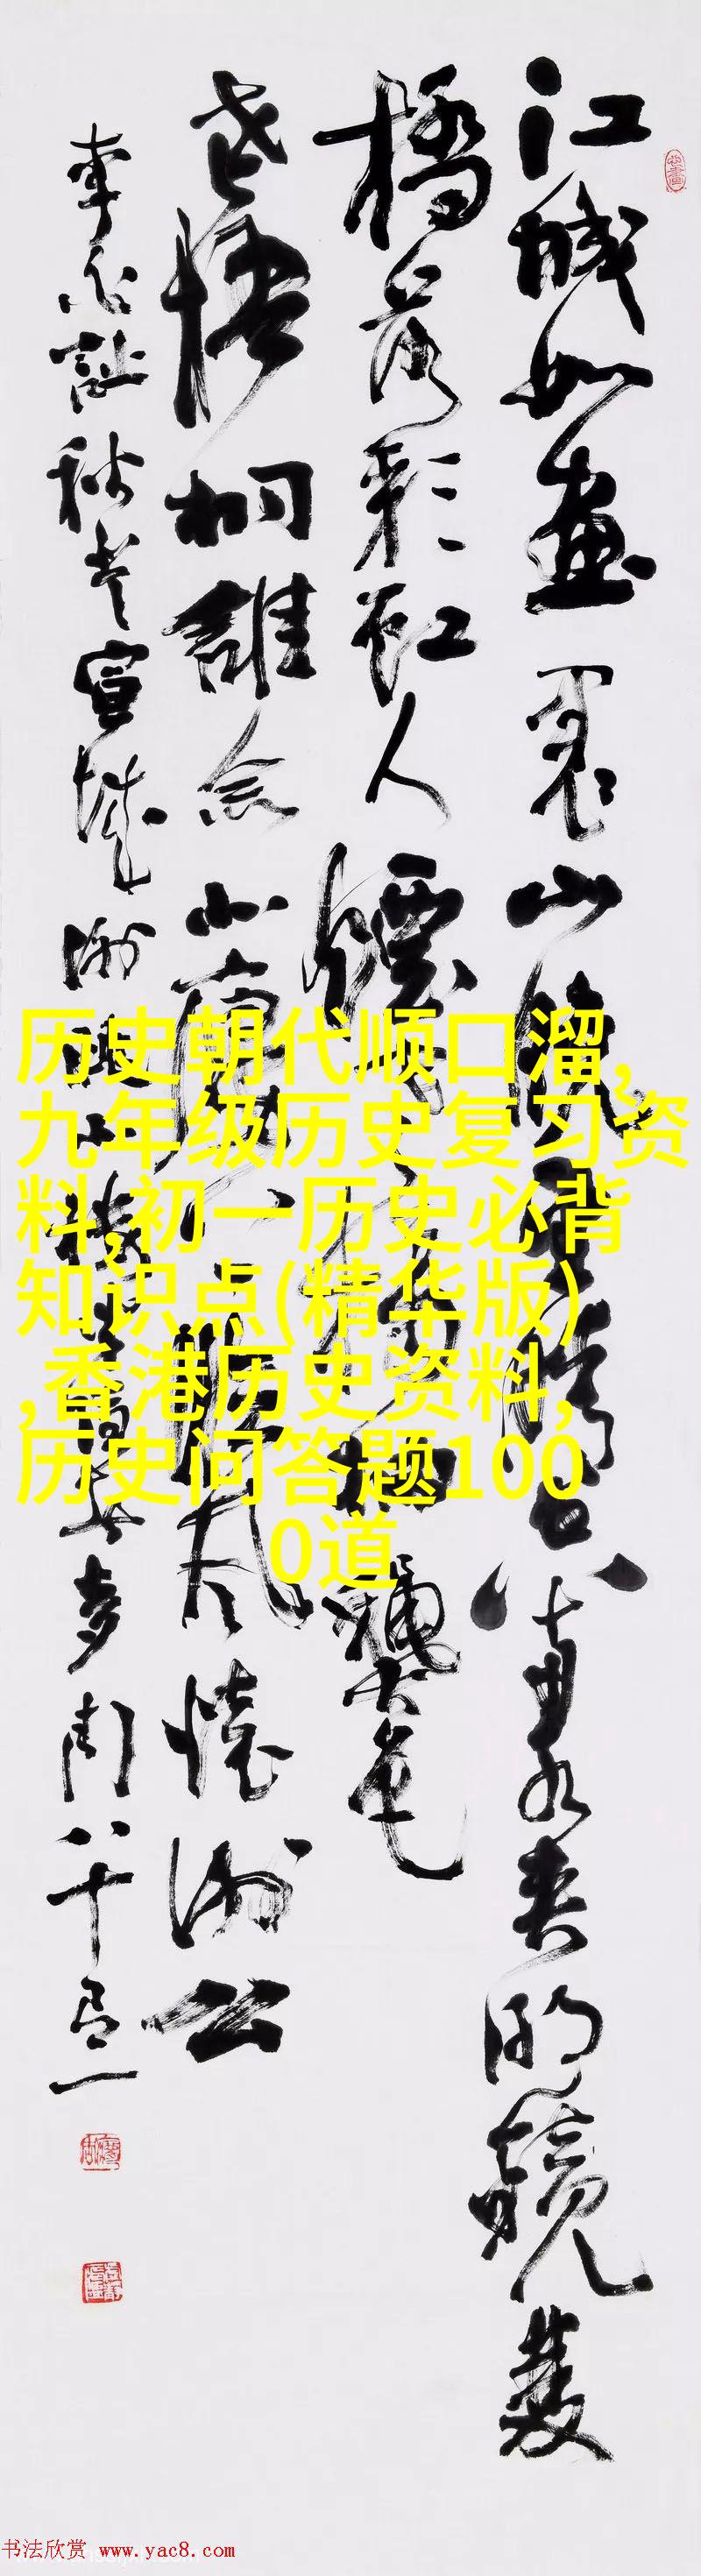 江城如畫裏山曉望晴空兩水夾明鏡雙
橋落彩虹人煙寒橘柚秋色
老梧桐誰念北樓上臨風懷謝公
李白詩秋登宣城謝朓北樓
八十
历史朝代顺口溜,
九年级历史复习资
料,初一历史必背
知识点(精华版)
,香港历史资料,
历史问答题100
0道
书法欣赏 www.yac8.com